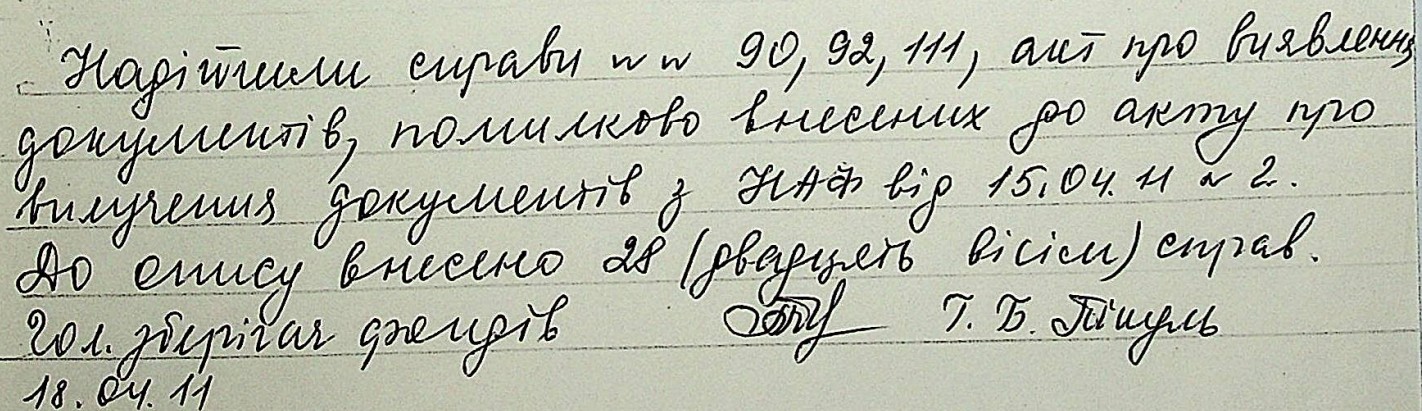 Надійшли справи №№ 90, 92, 111, акт про виявлення
документів, помилково внесених до акту про
вилучення документів з НАФ від 15.04.11 № 2.
До опису внесено 28 (двадцять вісім) справ.
Гол. зберігач фондів Г. Б. Пікуль
18.04.11